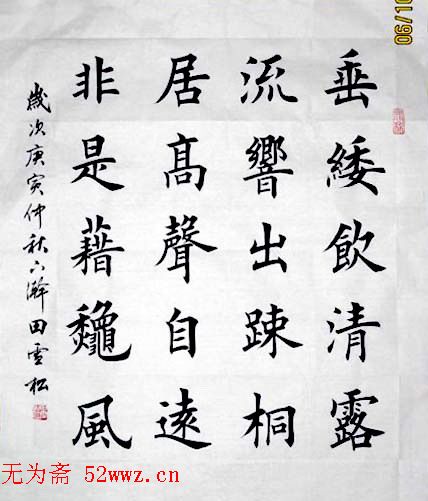 垂緌飲清露
流響出疎桐
居髙聲自遠
非是藉龝風
歲次庚寅仲秋下澣田雪松
无为斋 52wwz.cn